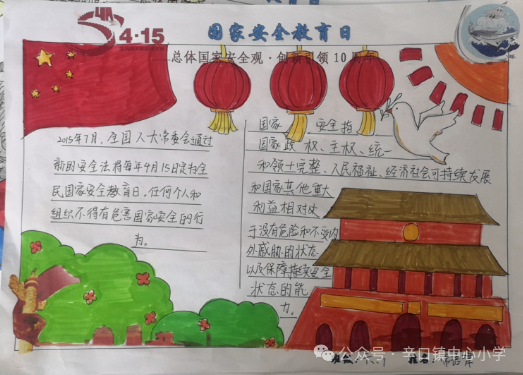 4·15
国家安全教育日
总体国家安全观·创新引领10
2015年7月,全国人大常委会通过
新的安全法将每年4月15日定为全
民国家安全教育日,任何个人和
组织不得有危害国家安全的行
为。
国家安全指
国家政权、主权、统一
和领土完整、人民福祉、经济社会可持续发展
和国家其他重大
利益相对处
于没有危险和不受内
外威胁的状态
以及保障持续安全
状态的能
力。
公众号·辛口镇中心小学